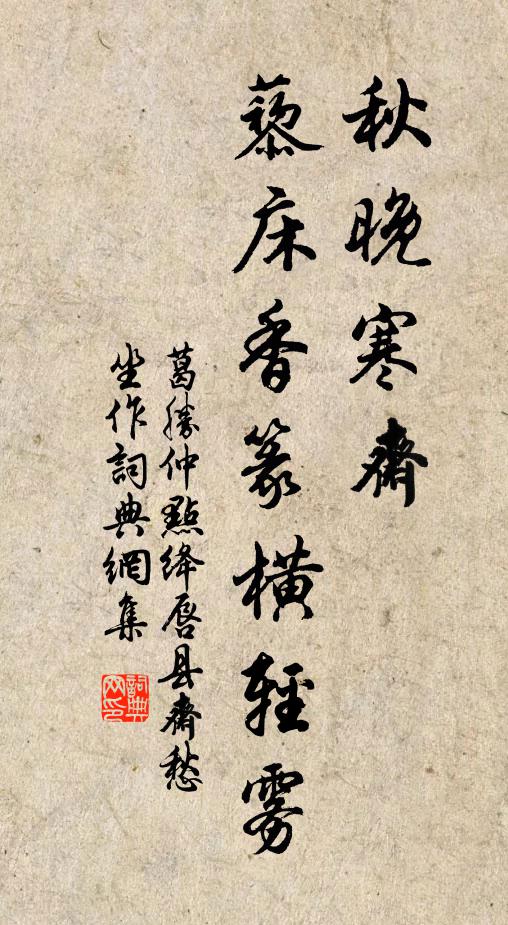 秋晚寒齋
藜床香篆橫輕雾
葛勝仲點绛唇县齋愁
坐作詞典網集
詞典
网印